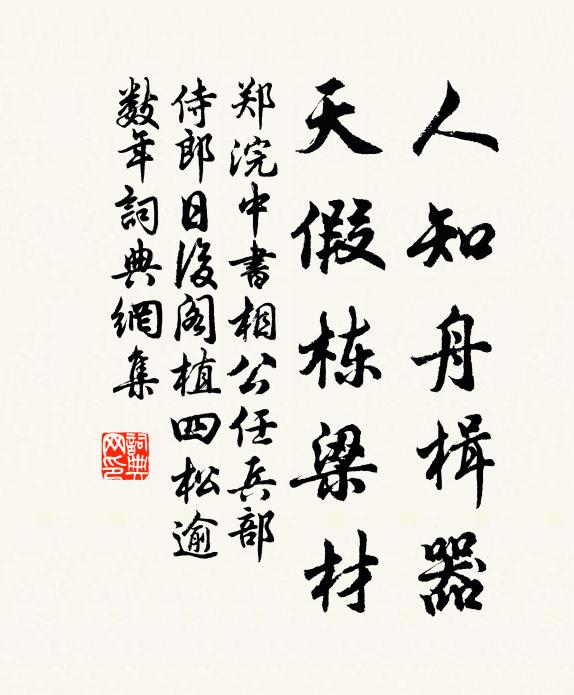 人知舟楫器
天假栋梁材
郑浣中書相公任兵部
侍郎日後阁植四松逾
数年詞典網集
詞典
网印